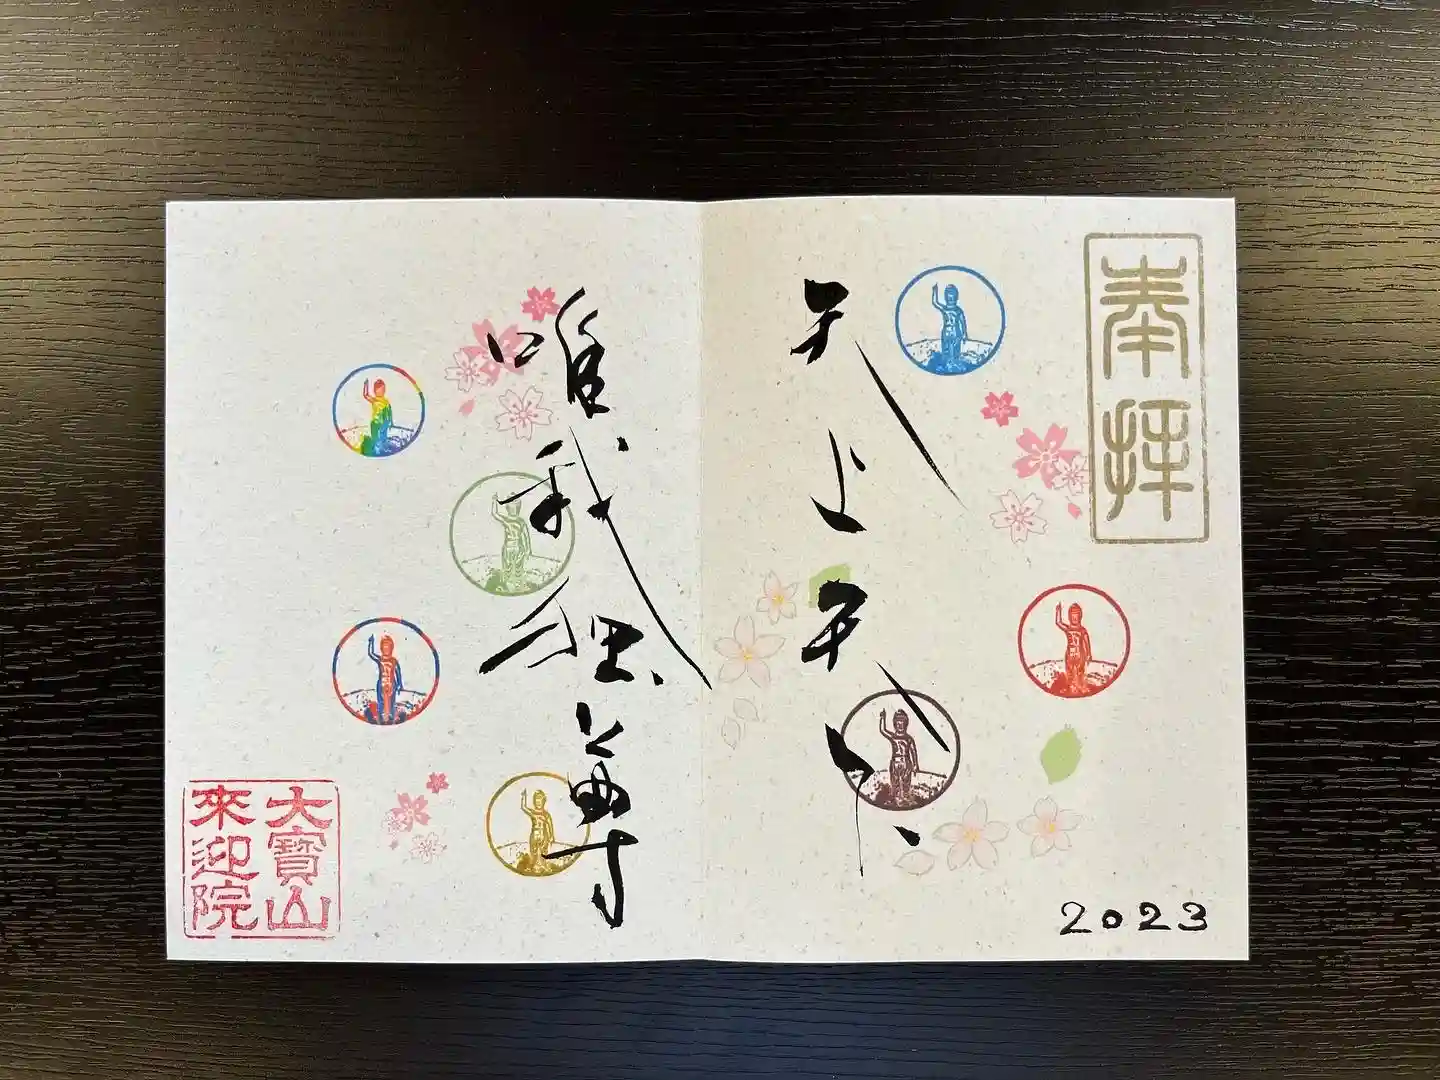 奉拝
天上天下
2023
唯我独尊
大寶山
來迎院